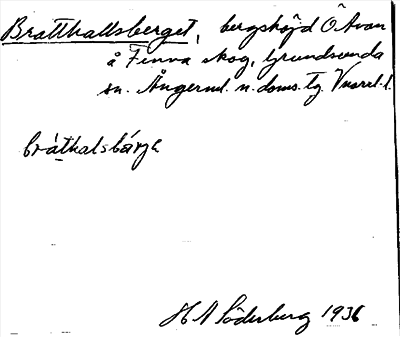 Bratthallsberget, bergshöjd Ö Avan
å Finna skog, Grundsunda
sn. Ångerml. n. doms. tg. Vnorrl. l.
bràthalsbárjə
H A Söderberg 1936